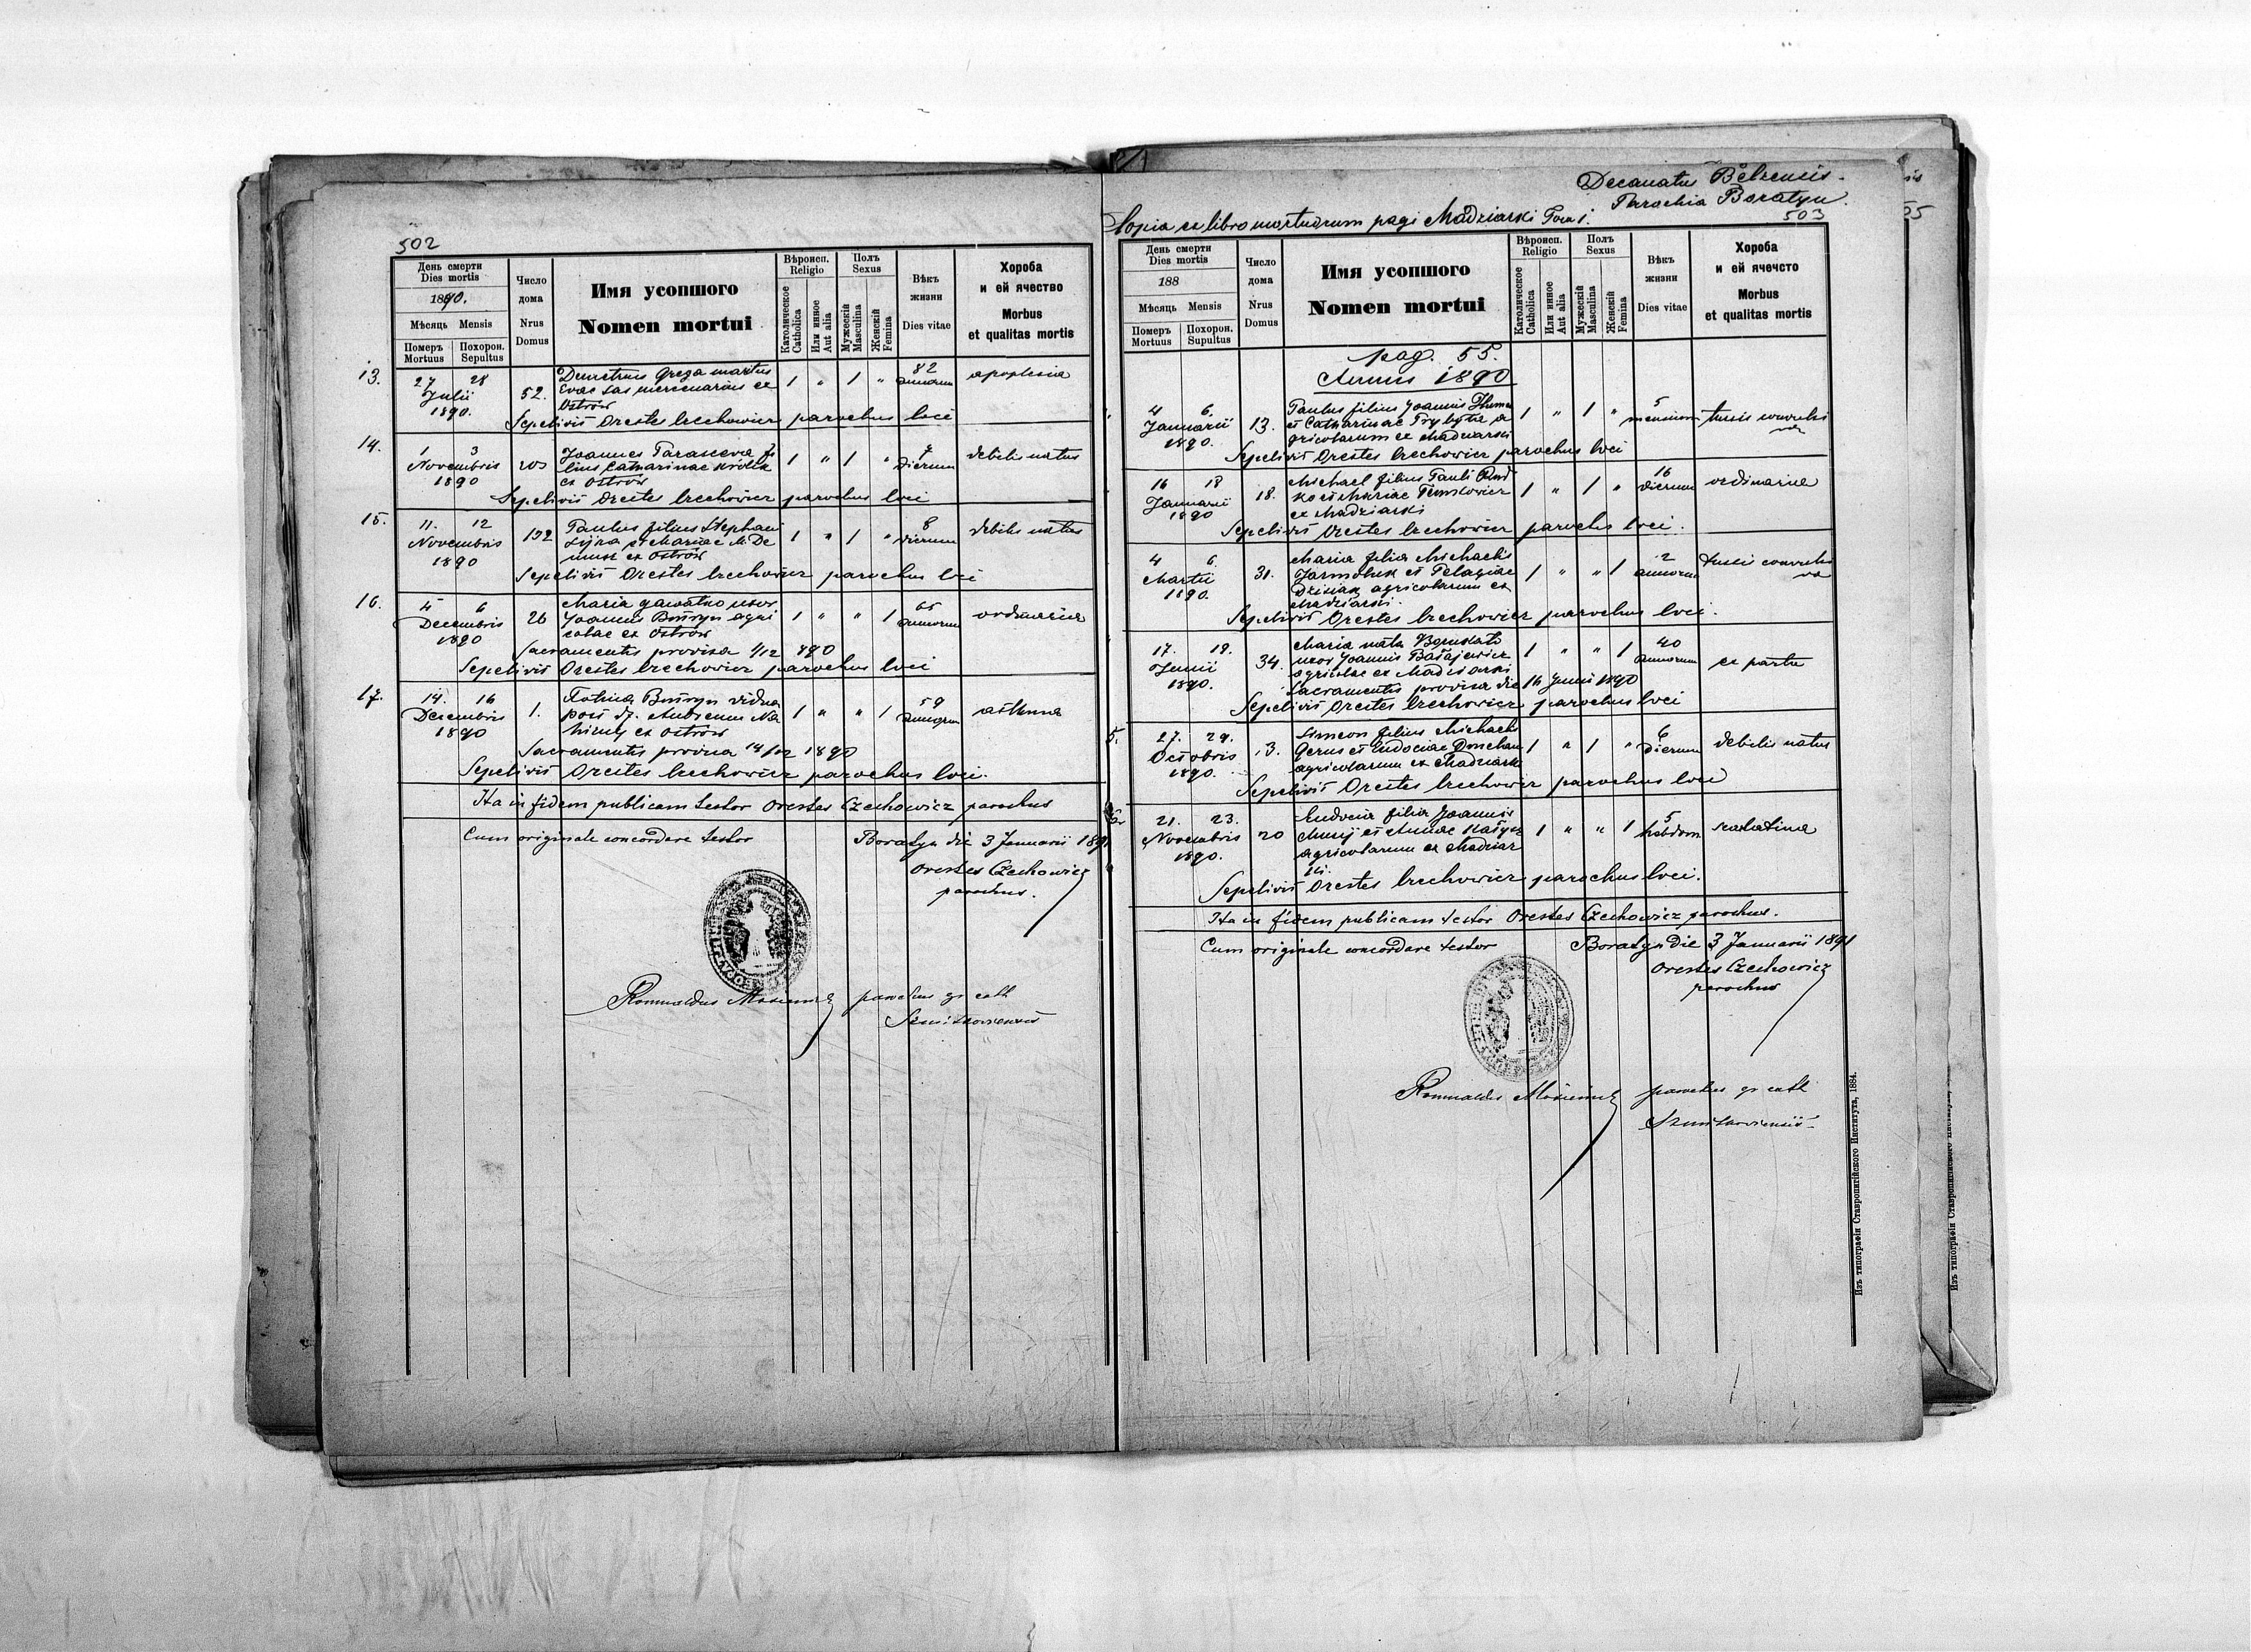 502
День смерти
Dies mortis
1890.
Мѣсяць Mensis
Померъ Похорон.
Mortuus Sepultus
Число
дома
Nrus
Domus
Имя усопшого
Nomen mortui
Вѣроисп.
Religio
Католическое
Catholica
Или иное
Aut alia
Полъ
Sexus
Мужескій
Masculina
Женскій
Femina
Вѣкъ
жизни
Dies vitae
Хороба
и ей ячество
Morbus
et qualitas mortis
13.
27 28
Julii
1890.
52.
Demetrius Gręza maritus
Evae Łas mercenarius ex
Ostrów
1 " 1 "
82
annorum
apoplexia
Sepelivit Orestes Czechowicz parochus loci
14.
1 3
Novembris
1890
Joannes Parasceva fi
lius Catharinae Królik
ex Ostrów
1 " 1 "
7
dierum
debilis natus
Sepelivit Orestes Czechowicz parochus loci
15.
11. 12
Novembris
1890
132
Paulus filius Stephani
et Mariae
ex Ostrów
1 " 1 "
8
dierum
debilis natus
Sepelivit Orestes Czechowicz parochus loci
16.
4 6
Decembris
1890
26
Maria Gawałko uxor
Joannis agri
colae ex Ostrów
1 " " 1
65
annorum
ordinaria
Sacramentis provisa 4/12 890
Sepelivit Orestes Czechowicz parochus loci
17.
14. 16
Decembris
1890
1.
vidua
ex Ostrów
1 " " 1
59
annorum
asthma
Sacramentis provisa 14/12 1890
Sepelivit Orestes Czechowicz parochus loci.
Ita in fidem publicam testor Orestes Czechowicz parochus
Cum originale concordare testor
Boratyn die 3 Januarii 1891
Orestes Czechowicz
parochus.
Romualdus parochus gr cath
Decanatus Bełzensis.
Parochia Boratyn.
503
Copia ex libro mortuorum pagi Madziarki Tom I.
День смерти
Dies mortis
188
Мѣсяць Mensis
Померъ Похорон.
Mortuus Supultus
Число
дома
Nrus
Domus
Имя усопшого
Nomen mortui
Вѣроисп.
Religio
Католическое
Catholica
Или иное
Aut alia
Полъ
Sexus
Мужескій
Masculina
Женскій
Femina
Вѣкъ
жизни
Dies vitae
Хороба
и ей ячечсто
Morbus
et qualitas mortis
pag. 55.
Annus 1890
4 6.
Januarii
1890.
13.
Paulus filius Joannis
et Catharinae a
gricolarum ex Madziarki
1 " 1 "
5
mensium
tussis convulsi
va
Sepelivit Orestes Czechowicz parochus loci
16 18
Januarii
1890
18.
Michael filius Pauli
ko et Mariae
ex Madziarki
1 " 1 "
16
dierum
ordinaria
Sepelivit Orestes Czechowicz parochus loci.
4 6.
Martii
1890.
31.
Maria filia Michaelis
Jarmoluk et Pelagiae
Dziniak agricolarum ex
Madziarki.
1 " " 1
2
annorum
tussis convulsi
va
Sepelivit Orestes Czechowicz parochus loci.
17. 19.
Junii
1890.
34.
Maria nata
uxor Joannis
agricolae ex Madziarki
1 " " 1
40
annorum
ex partu
Sacramentis provisa die 16 Junii 1890
Sepelivit Orestes Czechowicz parochus loci
5.
27. 29.
Octobris
1890.
13.
Simeon filius Michaelis
Gerus et Eudociae
agricolarum ex Madziarki
1 " 1 "
6
dierum
debilis natus
Sepelivit Orestes Czechowicz parochus loci
6.
21. 23.
Novembris
1890.
20
Eudocia filia Joannis
et Annae
agricolarum ex Madziar
ki.
1 " " 1
5
hebdom
scarlatina
Sepelivit Orestes Czechowicz parochus loci.
Ita in fidem publicam testor Orestes Czechowicz parochus.
Cum originale concordare testor
Boratyn die 3 Januarii 1891
Orestes Czechowicz
parochus
Romualdus parochus gr cath
Изъ типографіи Ставропигійского Института, 1884.